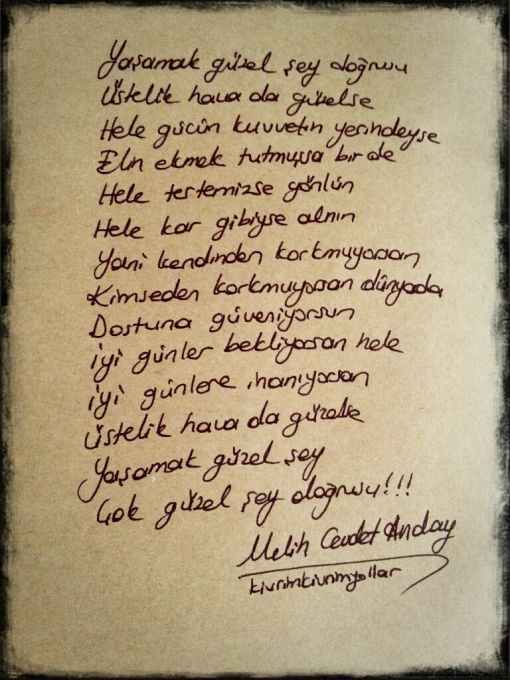 Yaşamak güzel şey doğrusu
Üstelik hava da güzelse
Hele gücün kuvvetin yerindeyse
Elin ekmek tutmuşsa bir de
Hele tertemizse gönlün
Hele kar gibiyse alnın
Yani kendinden korkmuyorsan
Kimseden korkmuyorsan dünyada
Dostuna güveniyorsun
İyi günler bekliyorsan hele
İyi günlere inanıyorsan
Üstelik hava da güzelse
Yaşamak güzel şey
Çok güzel şey doğrusu!!!
Melih Cevdet Anday
kivrimkivrimyollar